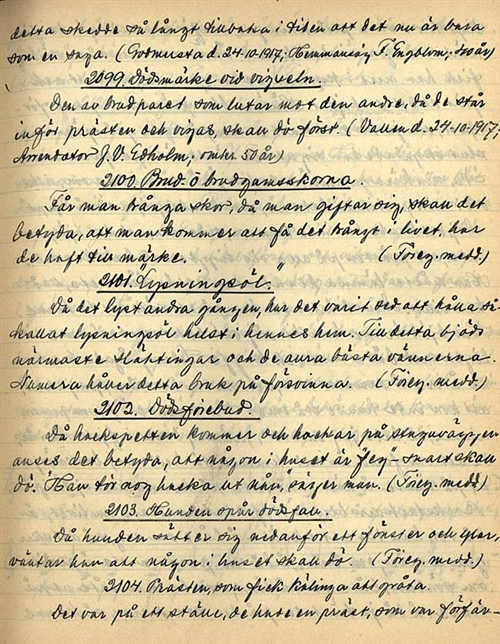 detta skedde så långt tillbaka i tiden att det nu är bara
som en saga. (Godmersta d. 24-10-1917; Hemmansäg. F. Engblom,
2099. Dödsmärke vid vigseln.
Den av brudparet, som lutar mot den andre, då de står
inför prästen och vigas, skall dö först. (Vallem d. 24-10-1917;
Arrendator J. V. Edholm; omkr. 50 år)
2100. Brud- o brudgumsskorna.
Får man trånga skor, då man giftar sig, skall det
betyda, att man kommer att få det trångt i livet, har
de haft till märke. (Föreg. medd.)
2101. "Lysningsöl."
Då det lyst andra gången, har det varit sed att hålla så
kallat lysningsöl helst i hennes hem. Till detta bjöds
närmaste släktingar och de allra bästa vännerna.
Numera håller detta bruk på försvinna. (Föreg. medd.)
2102. Dödsförebud.
Då hackspetten kommer och hackar på stuguväggen
anses det betyda, att någon i huset är "fey" snart skall
dö. Han tör nog hacka ut nån, säger man. (Föreg. medd)
2103. Hunden spår dödsfall.
Då hunden sätter sig nedanför ett fönster och ylar,
väntar han att någon i huset skall dö. (Föreg. medd.)
2104. Prästen, som fick källinga att gråta.
Det var på ett ställe, de hade en präst, som var förfär-